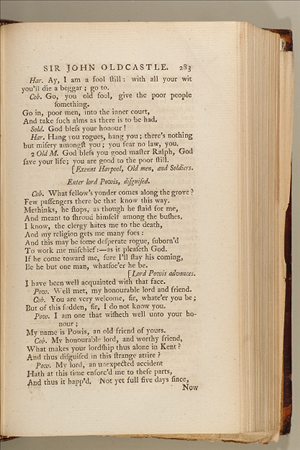 SIR JOHN OLDCASTLE. 283
Har. Ay, I am a fool ſtill: with all your wit
you'll die a beggar; go to.
Cob. Go, you old fool, give the poor people
ſomething.
Go in, poor men, into the inner court,
And take ſuch alms as there is to be had.
Sold. God bleſs your honour!
Har. Hang you rogues, hang you; there's nothing
but miſery amongſt you; you fear no law, you.
2 Old M. God bleſs you good maſter Ralph, God
ſave your life; you are good to the poor ſtill.
[Exeunt Harpool, Old men, and Soldiers.
Enter lord Powis, diſguiſed.
Cob. What fellow's yonder comes along the grove?
Few paſſengers there be that know this way.
Methinks, he ſtops, as though he ſtaid for me,
And meant to ſhroud himſelf among the buſhes.
I know, the clergy hates me to the death,
And my religion gets me many foes:
And this may be ſome deſperate rogue, ſuborn'd
To work me miſchief:—as it pleaſeth God.
If he come toward me, ſure I'll ſtay his coming,
Be he but one man, whatſoe'er he be.
[Lord Powis advances.
I have been well acquainted with that face.
Pow. Well met, my honourable lord and friend.
Cob. You are very welcome, ſir, whate'er you be;
But of this ſudden, ſir, I do not know you.
Pow. I am one that wiſheth well unto your ho-
nour;
My name is Powis, an old friend of yours.
Cob. My honourable lord, and worthy friend,
What makes your lordſhip thus alone in Kent?
And thus diſguiſed in this ſtrange attire?
Pow. My lord, an unexpected accident
Hath at this time enforc'd me to theſe parts,
And thus it happ'd. Not yet full five days ſince,
Now